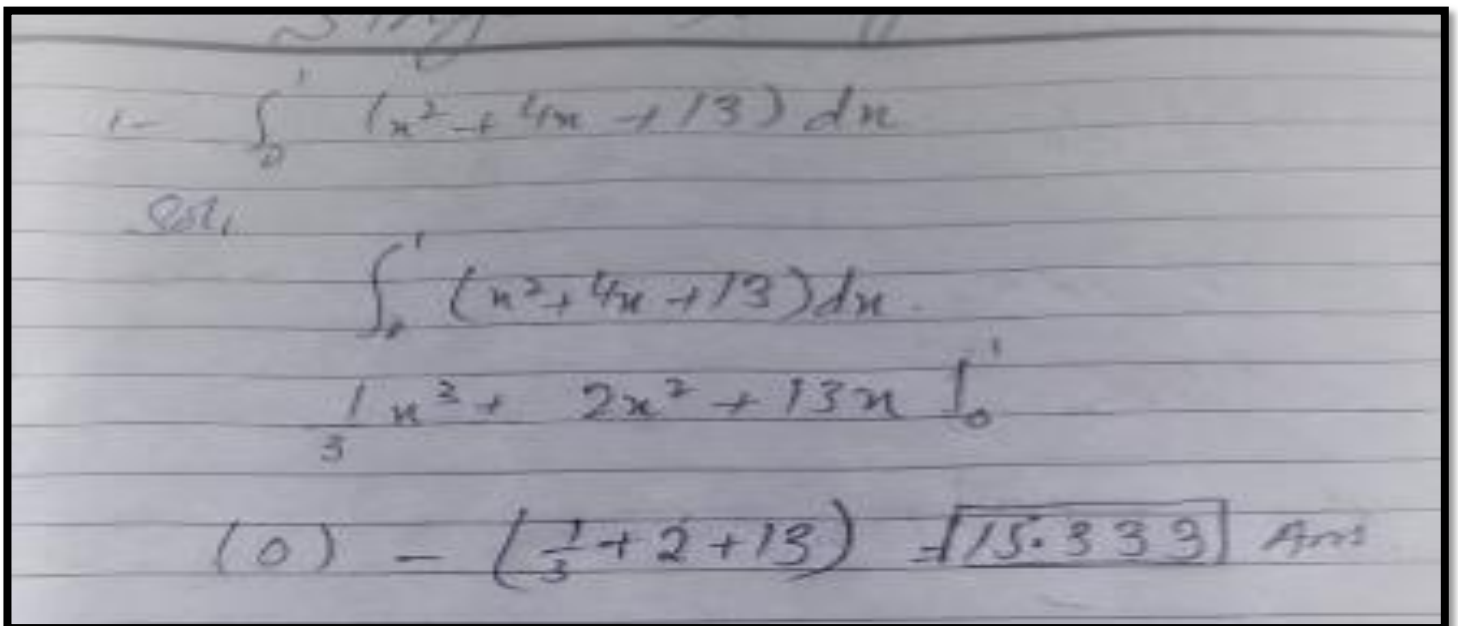 1- ∫₀¹ (x² + 4x + 13) dx
Sol,
∫₀¹ (x² + 4x + 13) dx.
1/3 x³ + 2x² + 13x ]₀¹
(0) - (1/3 + 2 + 13) = 15.333 Ans